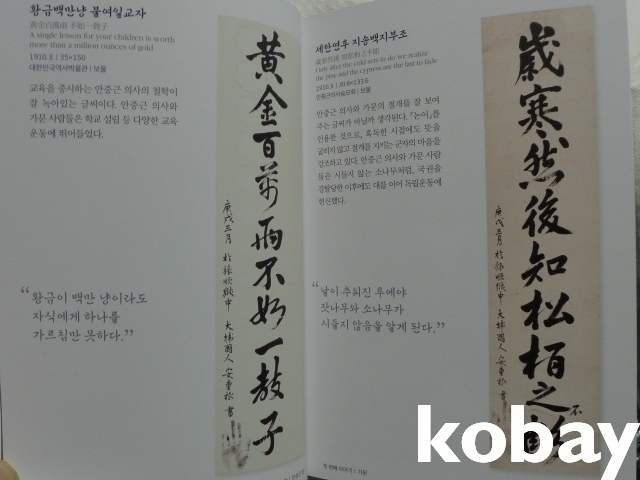 황금백만냥 불여일교자
黃金百萬兩 不如一敎子
A single lesson for your children is worth
more than a million ounces of gold
1910.3. | 35×150
대한민국역사박물관 | 보물
교육을 중시하는 안중근 의사의 철학이
잘 녹아있는 글씨이다. 안중근 의사와
가문 사람들은 학교 설립 등 다양한 교육
운동에 뛰어들었다.
“황금이 백만 냥이라도
자식에게 하나를
가르침만 못하다.”
黃金百萬兩不如一敎子
庚戌三月 於旅順獄中 大韓國人 安重根 書
세한연후 지송백지부조
歲寒然後 知松栢之不彫
Only after the cold sets in do we realize
the pine and the cypress are the last to fade
1910.3. | 30.6×133.6
안중근의사숭모회 | 보물
안중근 의사와 가문의 절개를 잘 보여
주는 글씨가 아닐까 생각된다. 『논어』를
인용한 것으로, 혹독한 시절에도 뜻을
굽히지 않고 절개를 지키는 군자의 마음을
강조하고 있다. 안중근 의사와 가문 사람
들은 시들지 않는 소나무처럼, 국권을
강탈당한 이후에도 대를 이어 독립운동에
헌신했다.
“날이 추워진 후에야
잣나무와 소나무가
시들지 않음을 알게 된다.”
歲寒然後知松栢之不彫
庚戌三月 於旅順獄中 大韓國人 安重根 書
첫 번째 이야기 | 가문
kobay